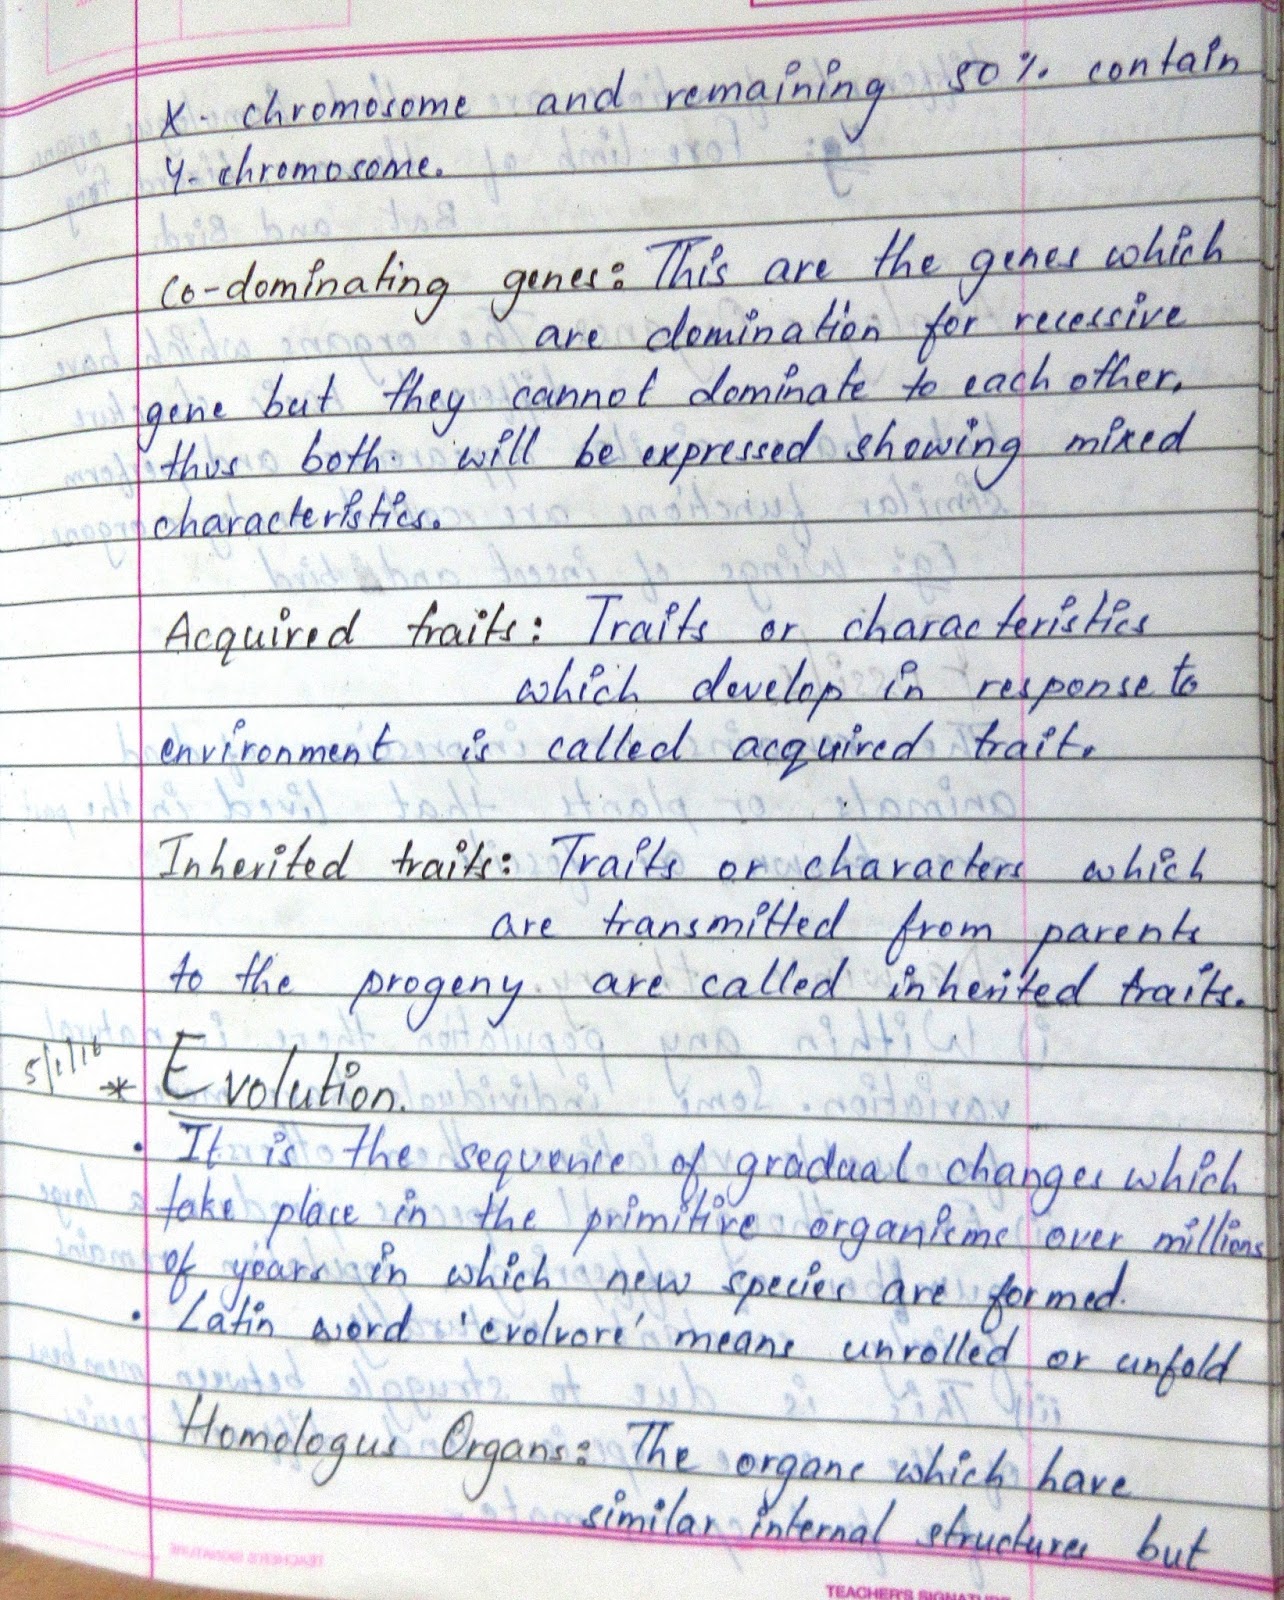 X-chromosome and remaining 50% contain
Y-chromosome.
Co-dominating genes: This are the genes which
are domination for recessive
gene but they cannot dominate to each other,
thus both will be expressed showing mixed
characteristics.
Acquired traits: Traits or characteristics
which develop in response to
environment is called acquired trait.
Inherited traits: Traits or characters which
are transmitted from parents
to the progeny are called inherited traits.
5/1/16
* Evolution.
• It is the sequence of gradual changes which
take place in the primitive organisms over millions
of years in which new species are formed.
• Latin word 'evolvore' means unrolled or unfold
Homologus Organs: The organs which have
similar internal structures but
TEACHER'S SIGNATURE